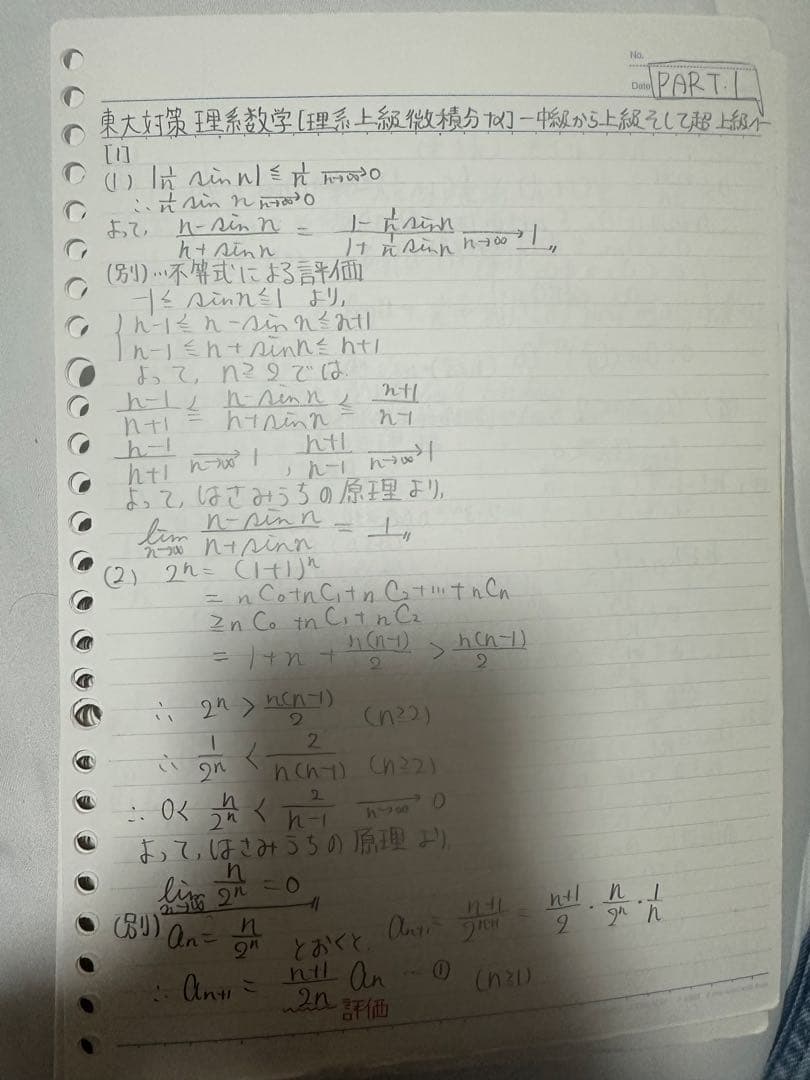 No.
Date PART.1
東大対策 理系数学[理系上級微積分+α]ー中級から上級そして超上級へ
[1]
(1) |1/n sin n| ≦ 1/n →(n→∞) 0
∴ 1/n sin n →(n→∞) 0
よって, (n-sin n)/(n+sin n) = (1-1/n sin n)/(1+1/n sin n) →(n→∞) 1
(別)…不等式による評価
-1≦ sin n ≦1 より,
{ n-1 ≦ n-sin n ≦ n+1
n-1 ≦ n+sin n ≦ n+1
よって, n≧2では
(n-1)/(n+1) ≦ (n-sin n)/(n+sin n) ≦ (n+1)/(n-1)
(n-1)/(n+1) →(n→∞) 1, (n+1)/(n-1) →(n→∞) 1
よって, はさみうちの原理より,
lim(n→∞) (n-sin n)/(n+sin n) = 1
(2) 2^n = (1+1)^n
= nC0+nC1+nC2+…+nCn
≧ nC0+nC1+nC2
= 1+n+n(n-1)/2 > n(n-1)/2
∴ 2^n > n(n-1)/2 (n≧2)
∴ 1/2^n < 2/n(n-1) (n≧2)
∴ 0< n/2^n < 2/(n-1) →(n→∞) 0
よって, はさみうちの原理より,
lim(n→∞) n/2^n = 0
(別) an = n/2^n とおくと, an+1 = (n+1)/2^(n+1) = (n+1)/2 · n/2^n · 1/n
∴ an+1 = (n+1)/2n an … ① (n≧1)
評価